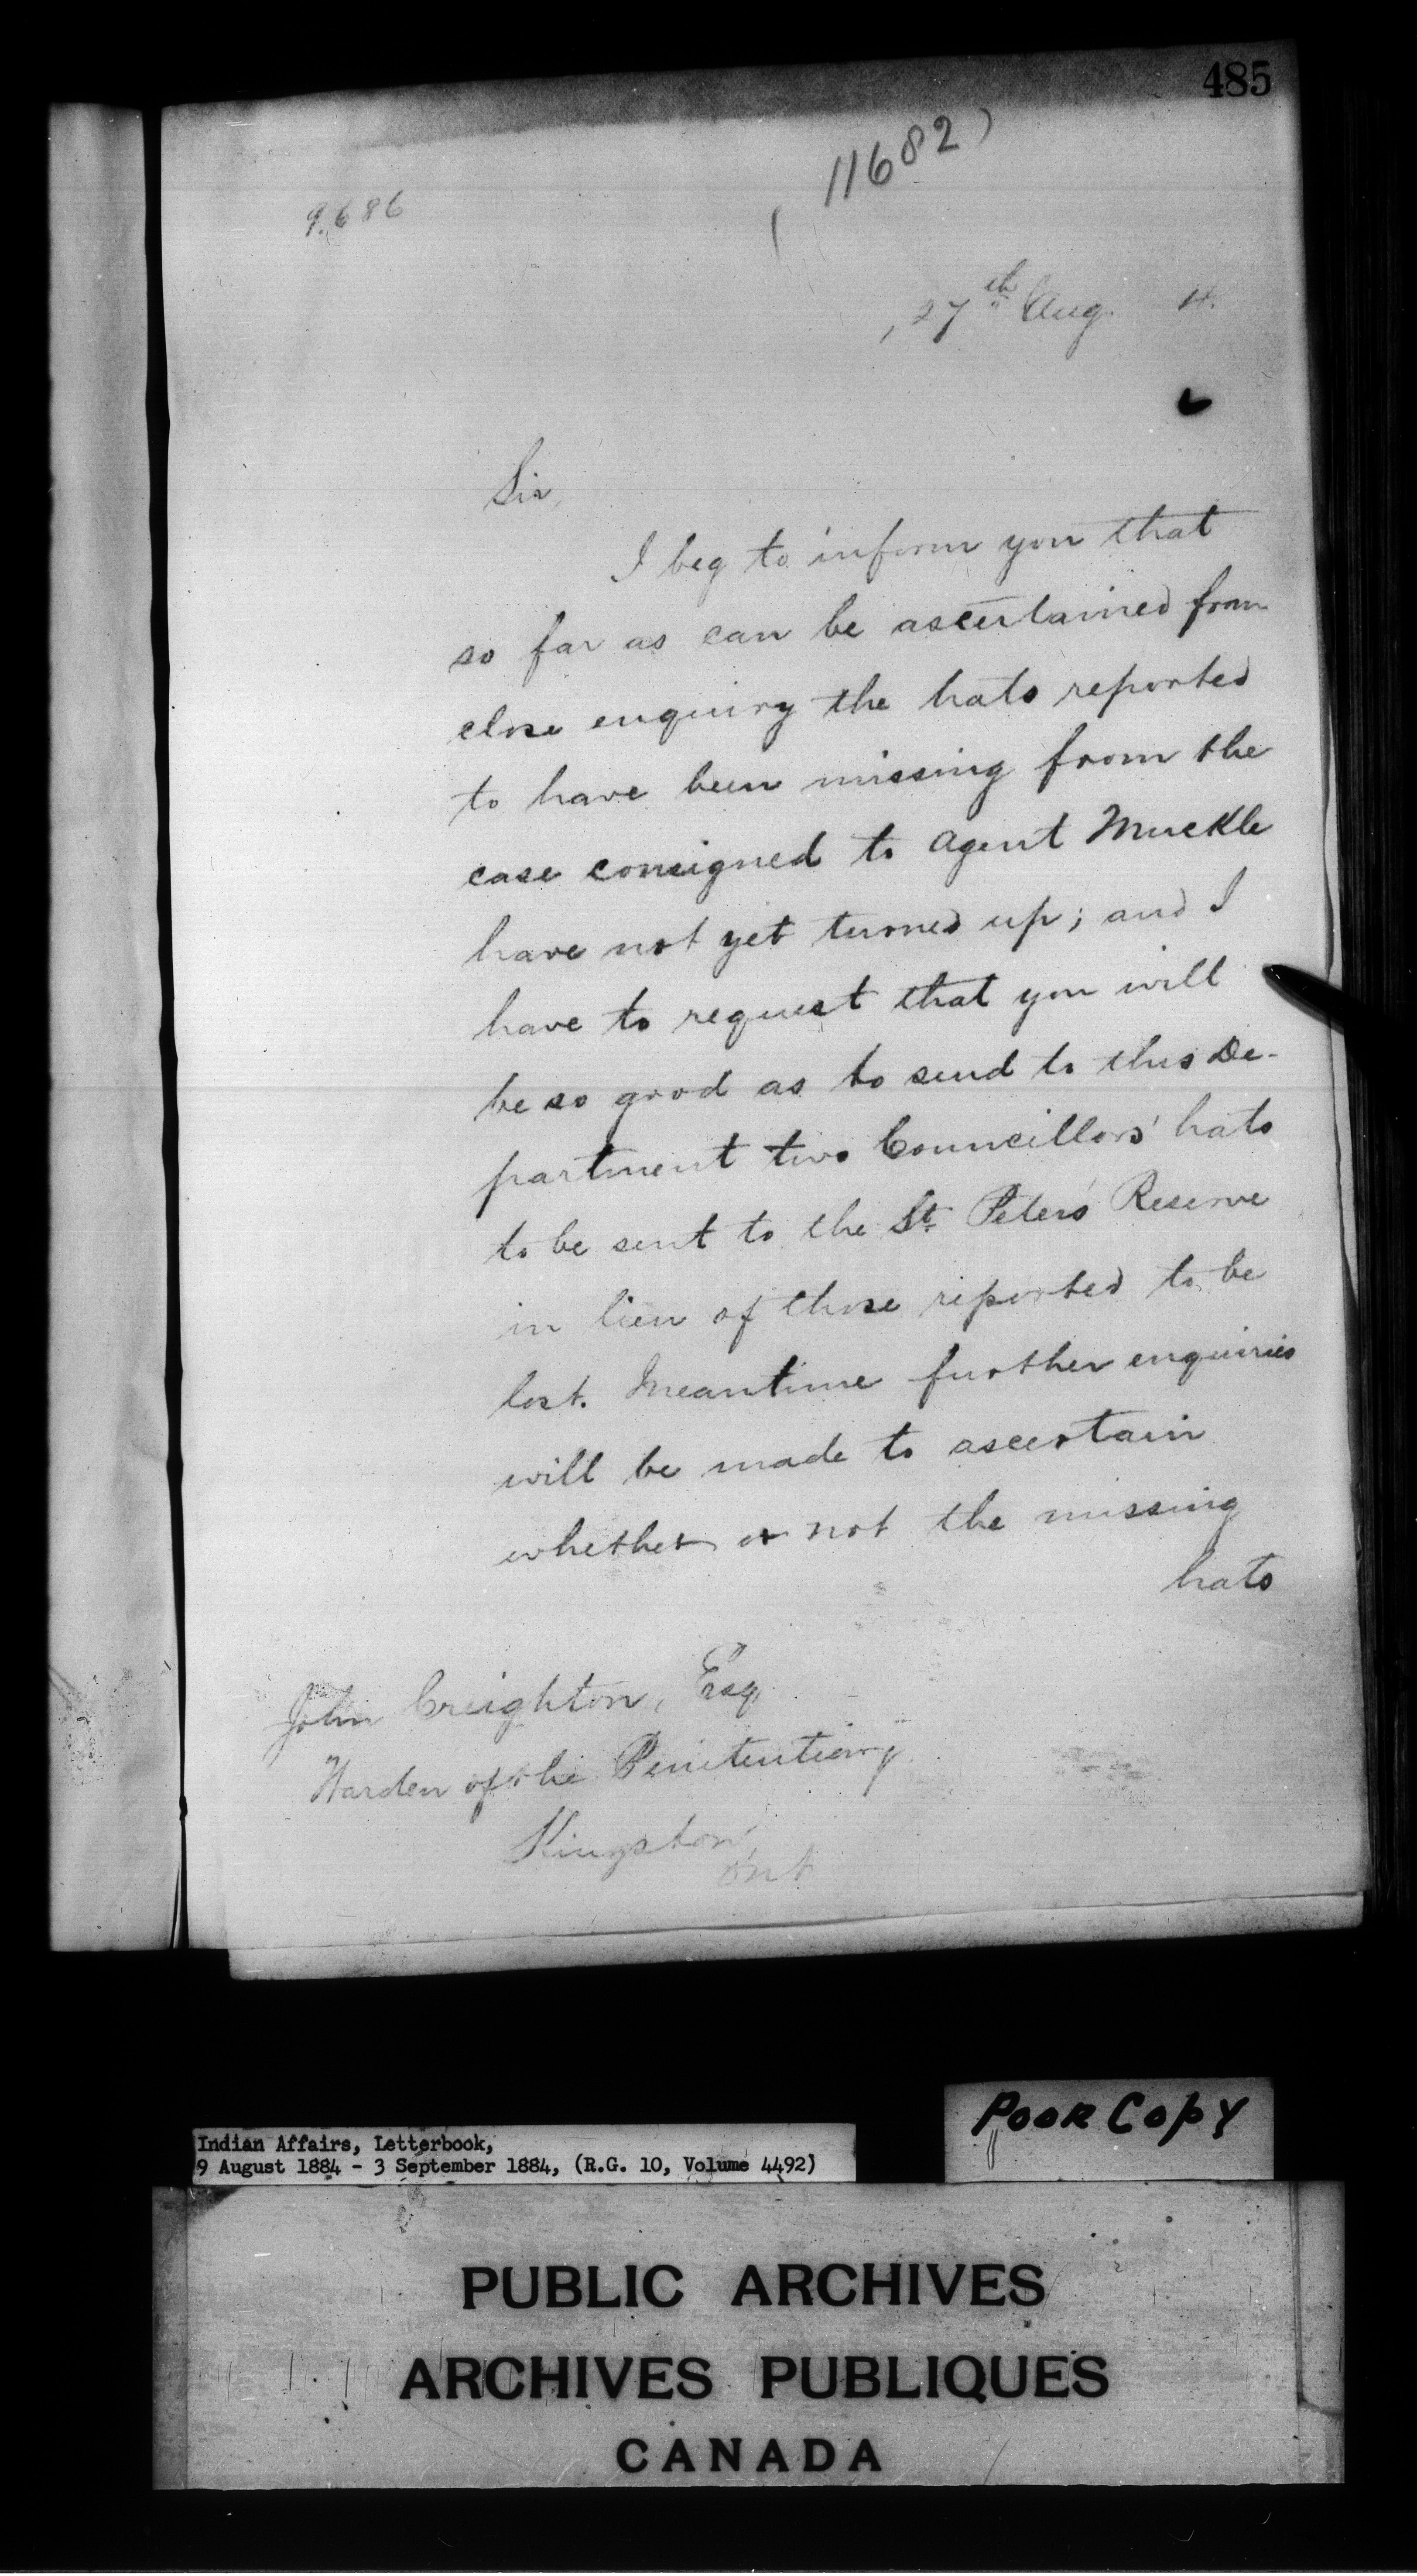 485
(11682)
9.686
, 27th Aug. 4.
Sir,
I beg to inform you that
so far as can be ascertained from
close enquiry the hats reported
to have been missing from the
case consigned to Agent Muckle
have not yet turned up; and I
have to request that you will
be so good as to send to this De-
partment two Councillors' hats
to be sent to the St. Peters' Reserve
in lieu of those reported to be
lost. Meantime further enquiries
will be made to ascertain
whether or not the missing
hats
John Creighton, Esq.
Warden of the Penitentiary
Kingston,
Ont
Poor Copy
Indian Affairs, Letterbook,
9 August 1884 - 3 September 1884, (R.G. 10, Volume 4492)
PUBLIC ARCHIVES
ARCHIVES PUBLIQUES
CANADA